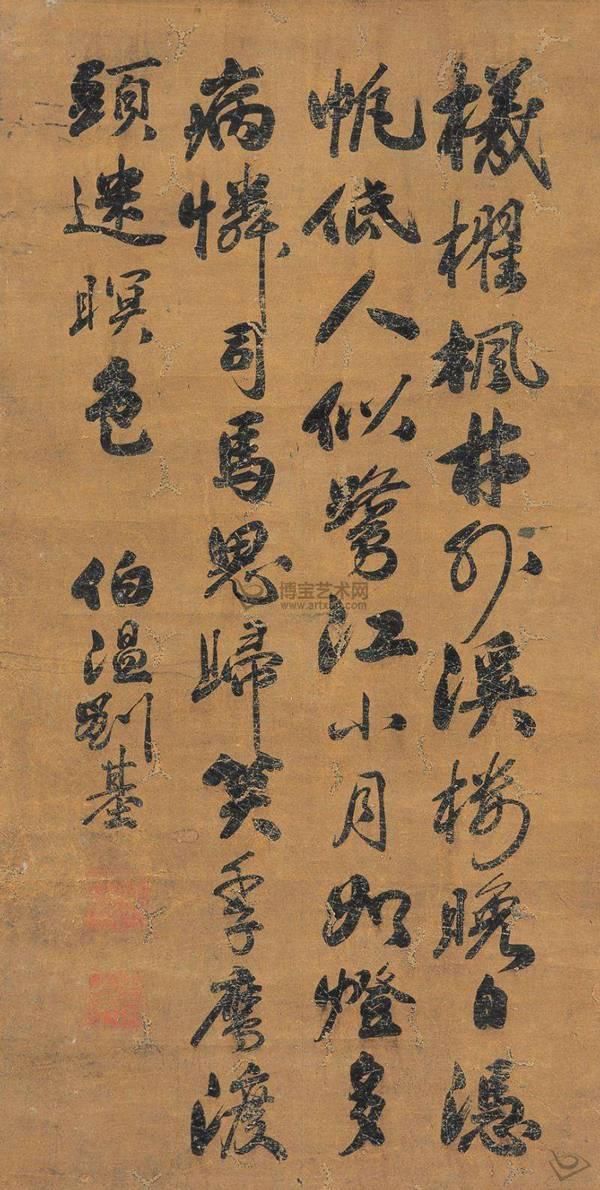 檥櫂楓林外溪樓晚自憑
帆低人似鷺江小月如燈多
病憐司馬思歸笑季鷹渡
頭迷暝色
伯溫劉基
博宝艺术网